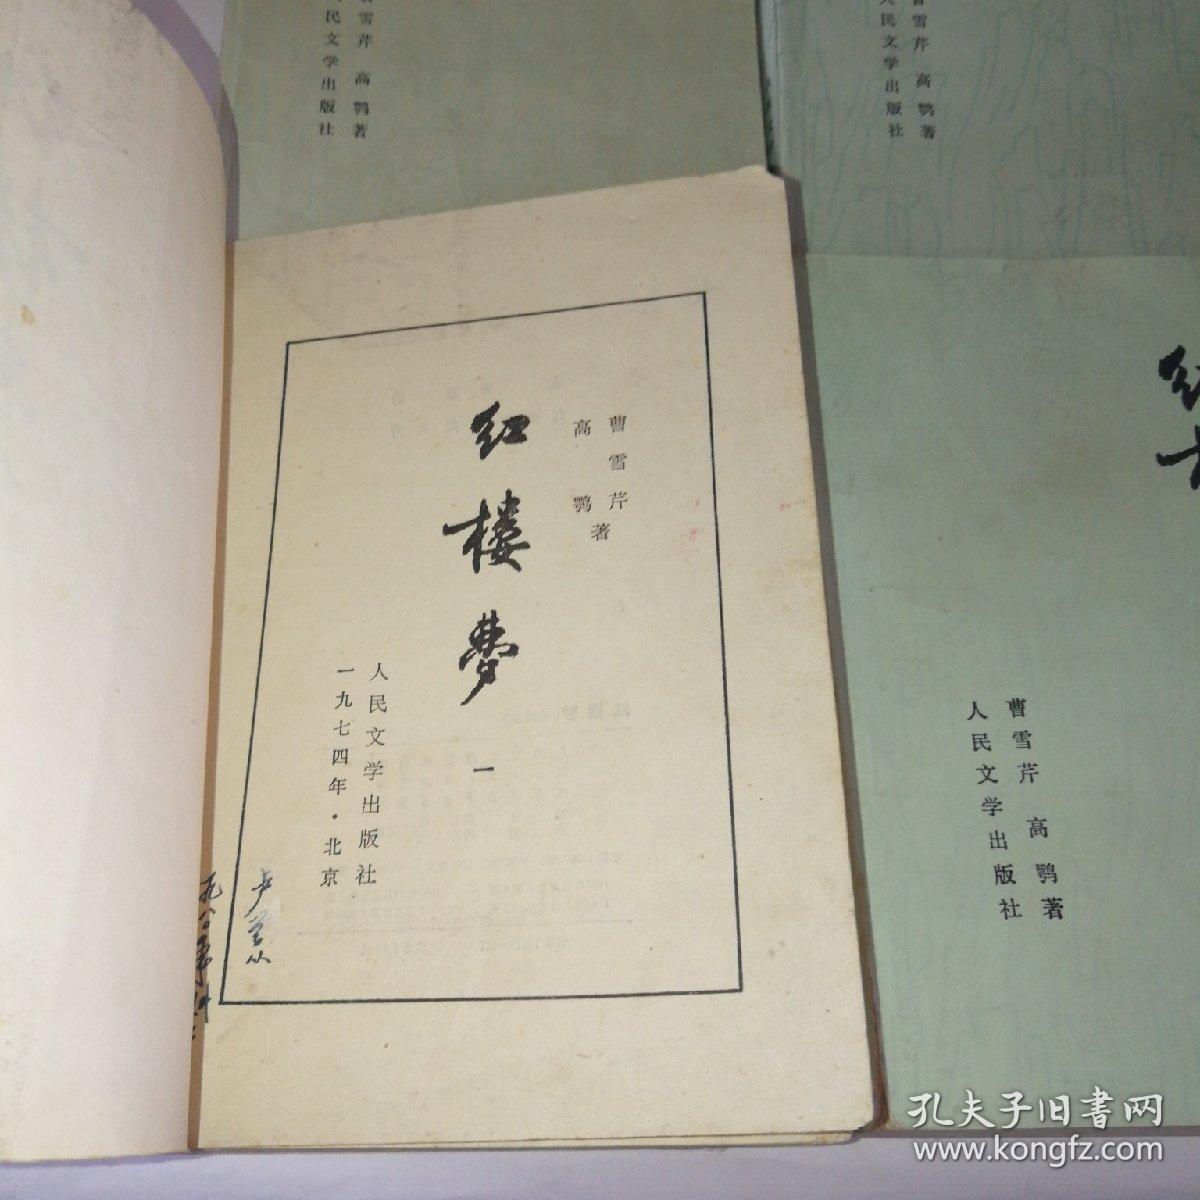 曹雪芹 高鹗著
人民文学出版社
曹雪芹 高鹗著
人民文学出版社
曹雪芹
高鹗
著
红楼梦
一
人民文学出版社
一九七四年·北京
红
曹雪芹 高鹗著
人民文学出版社
孔夫子旧书网
www.kongfz.com